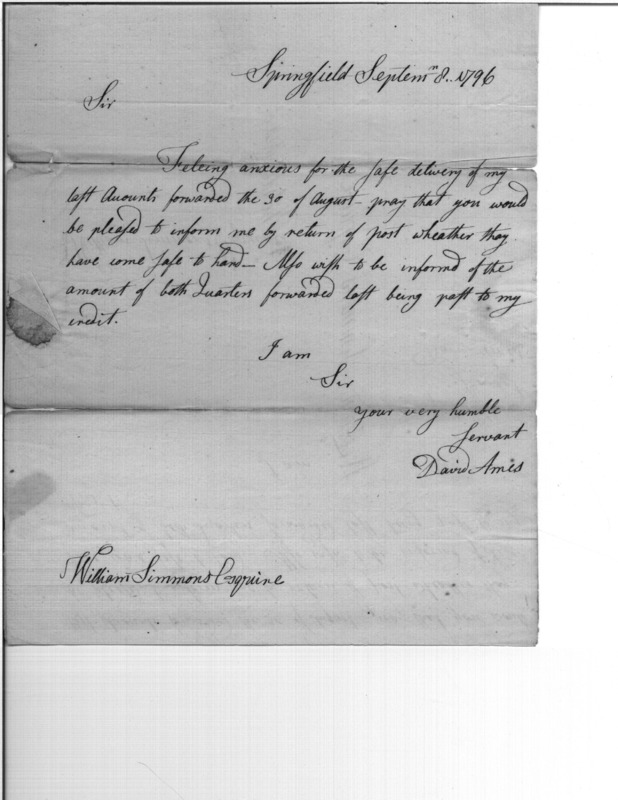 Springfield Septemr 8.. 1796
Sir
Feleing anxious for the safe delivery of my
last Acounts forwarded the 30 of August - pray that you would
be pleased to inform me by return of post wheather thay
have come safe to hand - Also wish to be informd of the
amount of both Quarters forwarded last being past to my
credit.
I am
Sir
your very humble
servant
David Ames
William Simmons Esquire